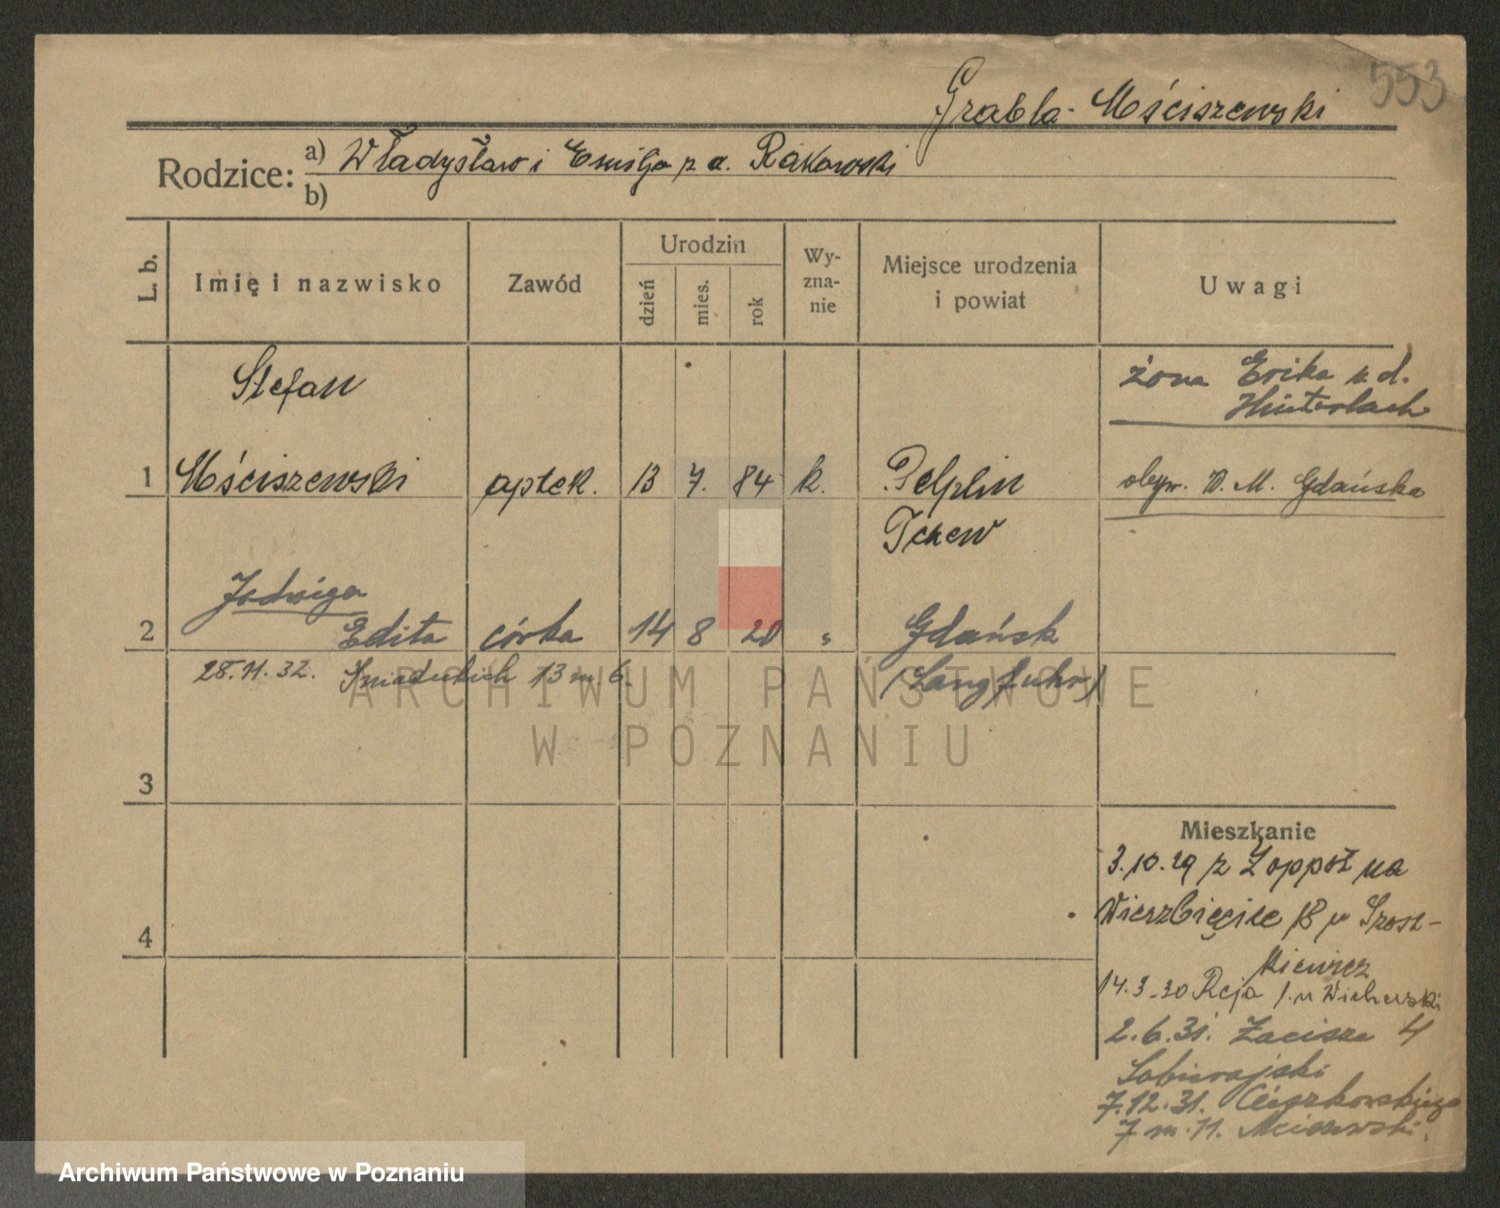 553
Grabla-Mściszewski
Rodzice: a) Władysław i Emilja z d. Rakowski
b)
L. b. Imię i nazwisko Zawód Urodzin dzień mies. rok Wy-zna-nie Miejsce urodzenia i powiat Uwagi
Stefan żona Erika z d.
Hinterlach
1 Mściszewski aptek. 13 7. 84 k. Pelplin obyw. W. M. Gdańska
Tczew
Jadwiga
2 Edita córka 14 8 20 " Gdańsk
28.11.32. Śniadeckich 13 m. 6. (Langfuhr)
ARCHIWUM PAŃSTWOWE
W POZNANIU
3
Mieszkanie
3.10.29 z Zoppot na
Wierzbięcice 18 u Szosz-
kiewicz
4
14.3.30 Reja 1. u Wicherski
2.6.31. Zacisze 4
7.12.31. Cieszkowskiego
7 m. 11.
Archiwum Państwowe w Poznaniu